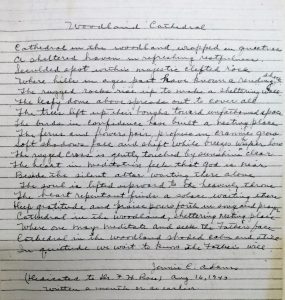 Woodland Cathedral
Cathedral in the woodland wrapped in quietness
A sheltered haven in refreshing restfulness
Secluded spot within majestic clefted rock
Where hills in ages past have known a rending
The rugged rocks rise up to make a sheltering wall
The leafy dome above spreads out to cover all
The trees lift up their boughs toward unfathomed space
The birds in confidence have built a nesting place
The ferns and flowers fair, profuse in crannies grow
Soft shadows fall and shift while breezes whisper low
The rugged cross is gently touched by sunshine clear
The heart in meditating feels that god is near
Beside the silent altar waiting there alone
The soul is lifted upward to the heavenly throne
The heart repentant finds a solace waiting there
Deep gratitude and praise pours forth in song and prayer
Cathedral in the woodland, sheltering resting place
Where one may meditate and seek the Father's face
Cathedral in the woodland shaded calm and still
In gratitude we wait to know the Father's will
Jennie E. Adams
(Dedicated to Dr. F. H. Rose) Aug. 16, 1943
Written a month or so earlier